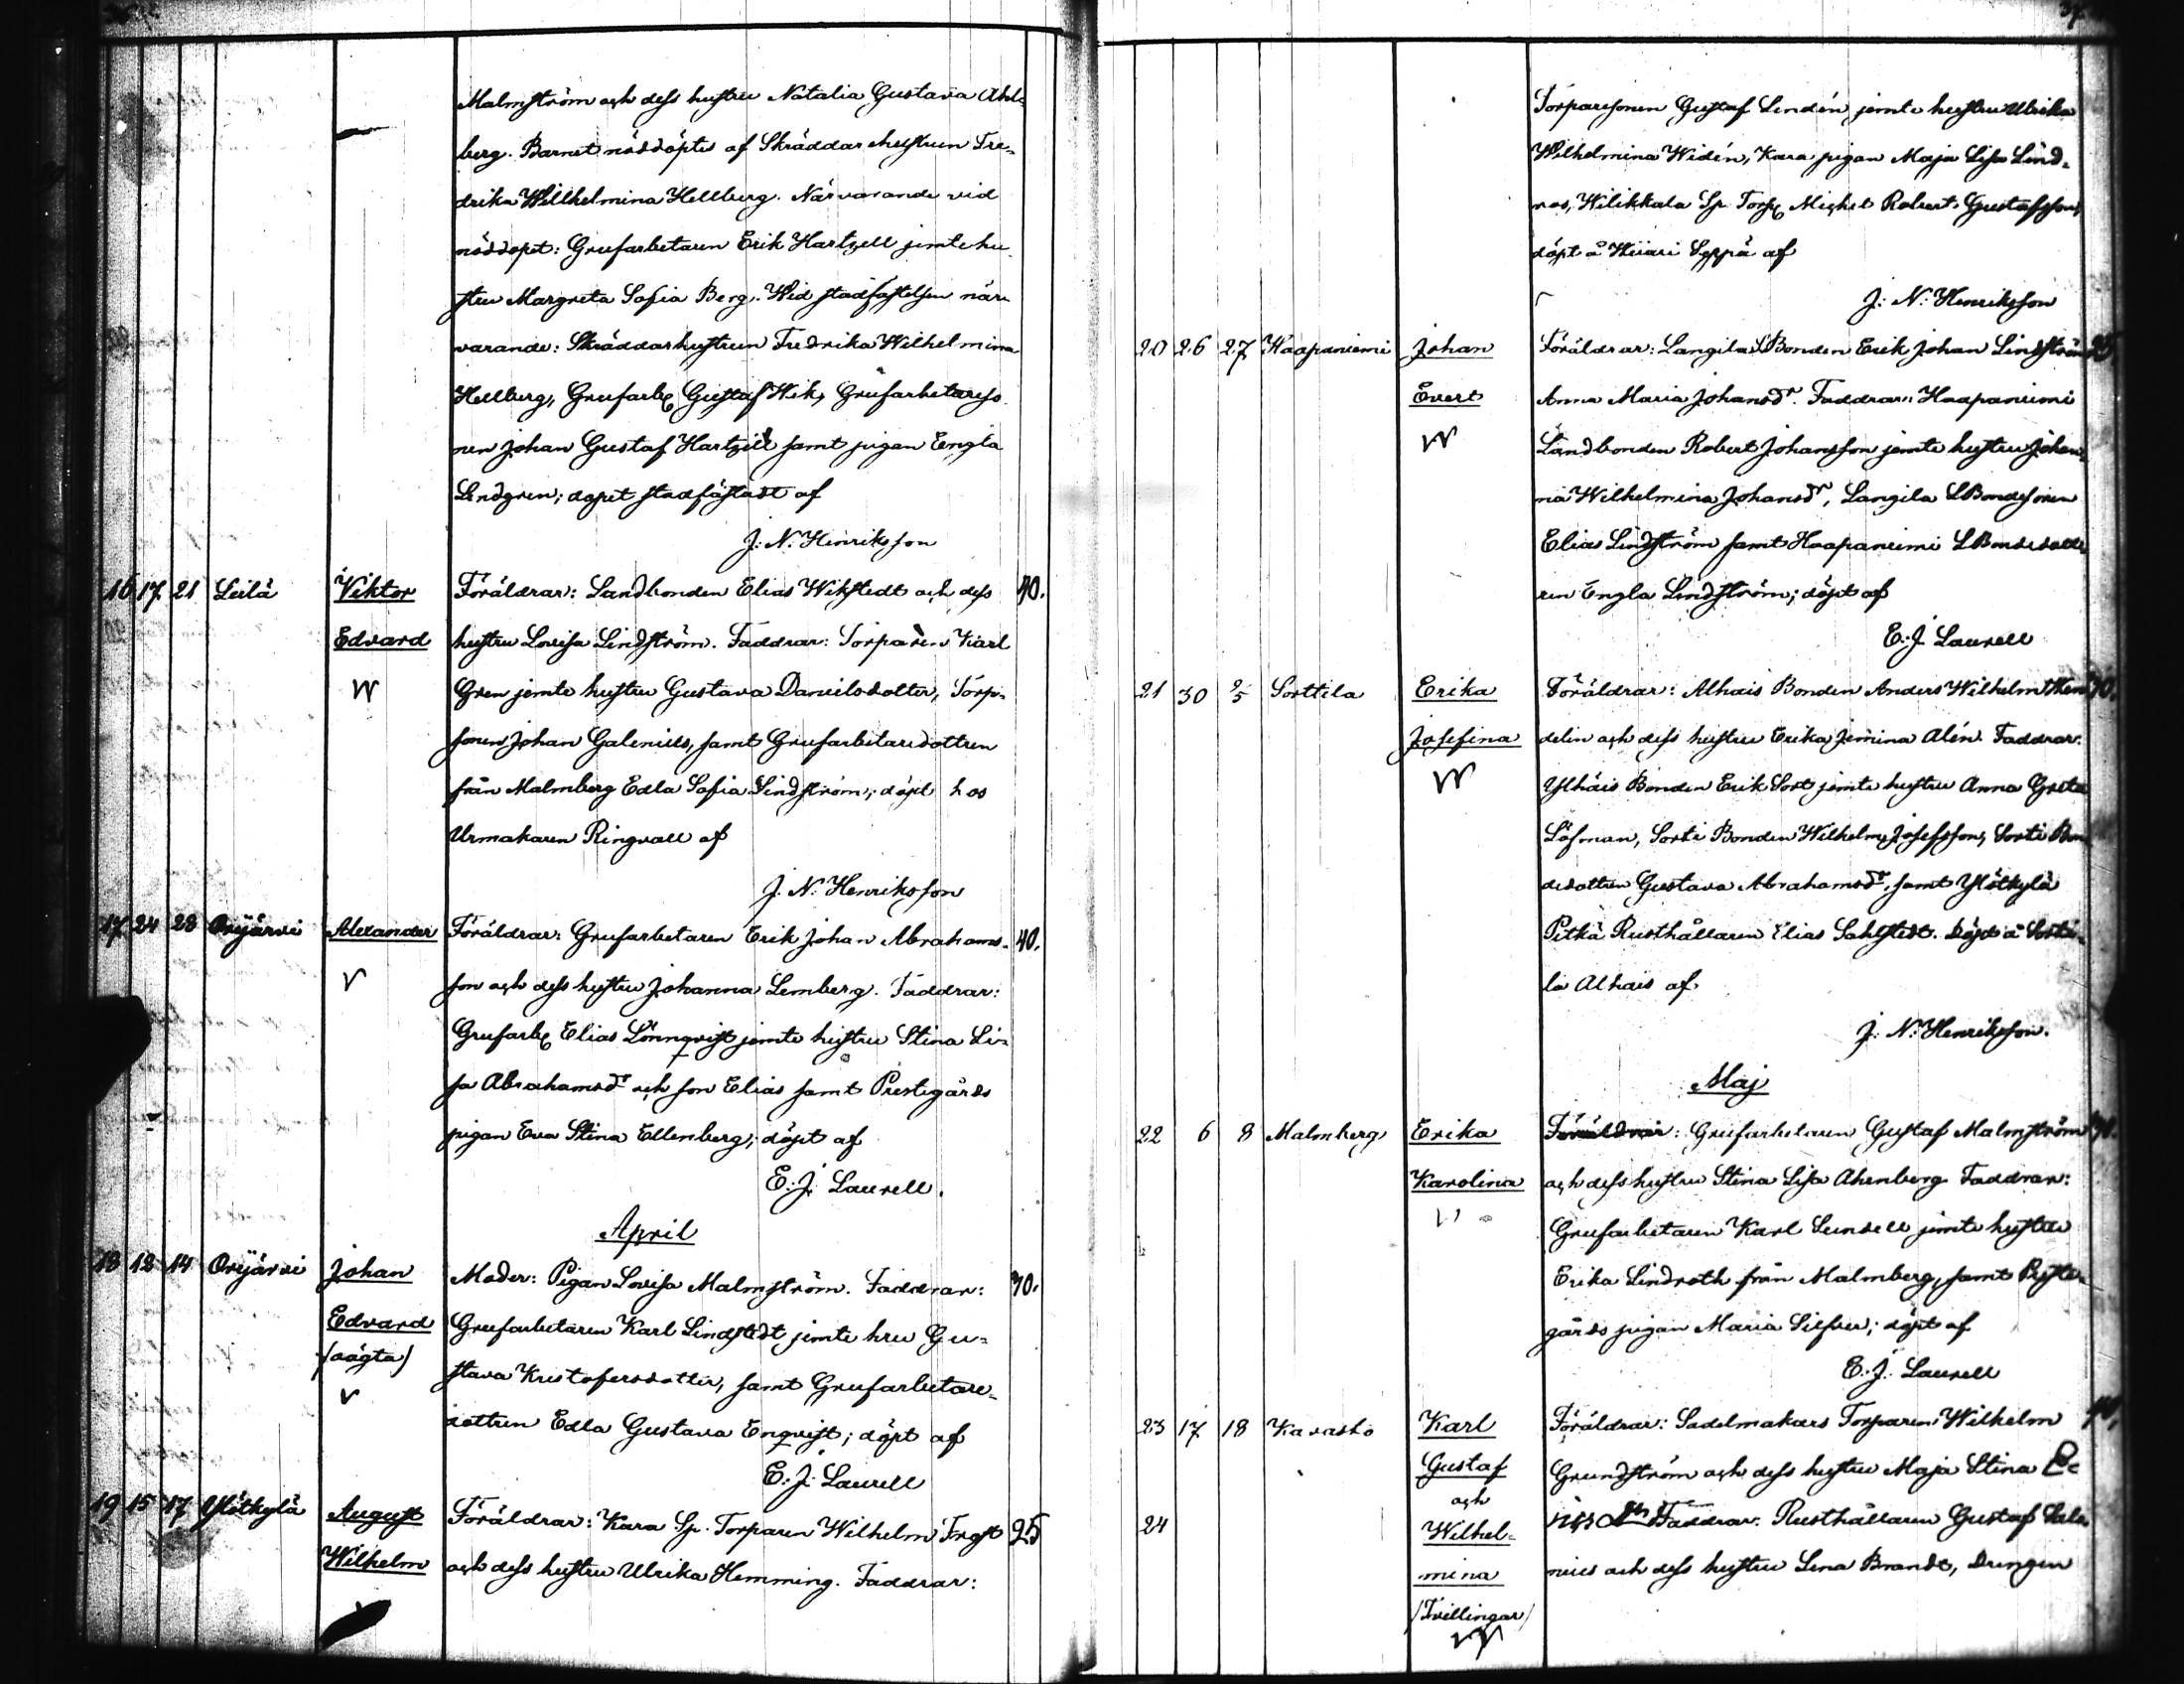 Malmström och dess hustru Natalia Gustava Ahl=
berg. Barnet nöddöptes af Skräddarehustrun Fre=
drika Willhelmina Hellberg. Närvarande vid
nöddopet: Grufarbetaren Erik Hartzell jemte hu
stru Margreta Sofia Berg. Wid stadfästelsen när
varande: Skräddarhustrun Fredrika Wilhelmina
Hellberg, Grufarb. Gustaf Wik, Grufarbetareso
nen Johan Gustaf Hartzell samt pigan Engla
Lindgren; dopet stadfästadt af
J: N: Henriksson
16 17 21 Leilä Viktor Föräldrar: Landbonden Elias Wikstedt och dess 40.
Edvard hustru Lovisa Lindström. Faddrar: Torparen Karl
Gren jemte hustru Gustava Danielsdotter, Torp=
sonen Johan Galenius, samt Grufarbetaredottren
från Malmberg Edla Sofia Lindström; döpt hos
Urmakaren Ringvall af
J. N. Henriksson
17 24 28 Orijärvi Alexander Föräldrar: Grufarbetaren Erik Johan Abrahams= 40.
son och dess hustru Johanna Lemberg. Faddrar:
Grufarb. Elias Lönnqvist jemte hustru Stina Li=
sa Abrahamsdr och son Elias samt Prestegårds
pigan Eva Stina Ellenberg; döpt af
E: J: Laurell.
April
18 12 14 Orijärvi Johan Moder: Pigan Lovisa Malmström. Faddrar: 40.
Edvard Grufarbetaren Karl Lindstedt jemte hru Gu=
/oägta/ stava Kristofersdotter, samt Grufarbetare=
dottren Edla Gustava Enqvist; döpt af
E: J: Laurell
19 15 17 Ylötkylä August Föräldrar: Kara Sp. Torparen Wilhelm 25
Wilhelm och dess hustru Ulrika Hemming. Faddrar:
Torparesonen Gustaf Lindén jemte hustru Ulrika
Wilhelmina Widén, Kara pigan Maja Lisa Lind=
roos, Wilikkala Sp. Torp. Michel Robert Gustafsson,
döpt å Hiiari Seppä af
J: N: Henriksson
20 26 27 Haapaniemi Johan Föräldrar: Langila LBonden Erik Johan Lindström 25
Evert Anna Maria Johansdr. Faddrar: Haapaniemi
Landbonden Robert Johansson jemte hustru Johan=
na Wilhelmina Johansdr, Langila LBondesonen
Elias Lindström samt Haapaniemi LBondedott
ren Engla Lindström; döpt af
E: J Laurell
21 30 2/5 Sorttila Erika Föräldrar: Alhais Bonden Anders Wilhelm Wen 40.
Josefina delin och dess hustru Erika Jemina Alén. Faddrar:
Ylhäis Bonden Erik Sort jemte hustru Anna Greta
Löfman, Sorti Bonden Wilhelm Josefsson, Sorti Bon
dedottren Gustava Abrahamsdr, samt Ylötkylä
Pitkä Rusthållaren Elias Sahlstedt. Döpt å Sortti=
la Alhais af
J: N: Henriksson.
Maj
22 6 8 Malmberg Erika Föräldrar: Grufarbetaren Gustaf Malmström 40.
Karolina och dess hustru Stina Lisa Ahrnberg. Faddrar:
Grufarbetaren Karl Lundell jemte hustru
Erika Lindroth från Malmberg, samt Preste=
gårds pigan Maria Silfver; döpt af
E: J: Laurell
23 17 18 Kavasto Karl Föräldrar: Sadelmakars Torparen Wilhelm 40,
Gustaf Grundström och dess hustru Maja Stina
och
24 Wilhel= Faddrar: Rusthållaren Gustaf Sale=
mina nius och dess hustru Lena Brandt, Drengen
/Tvillingar/